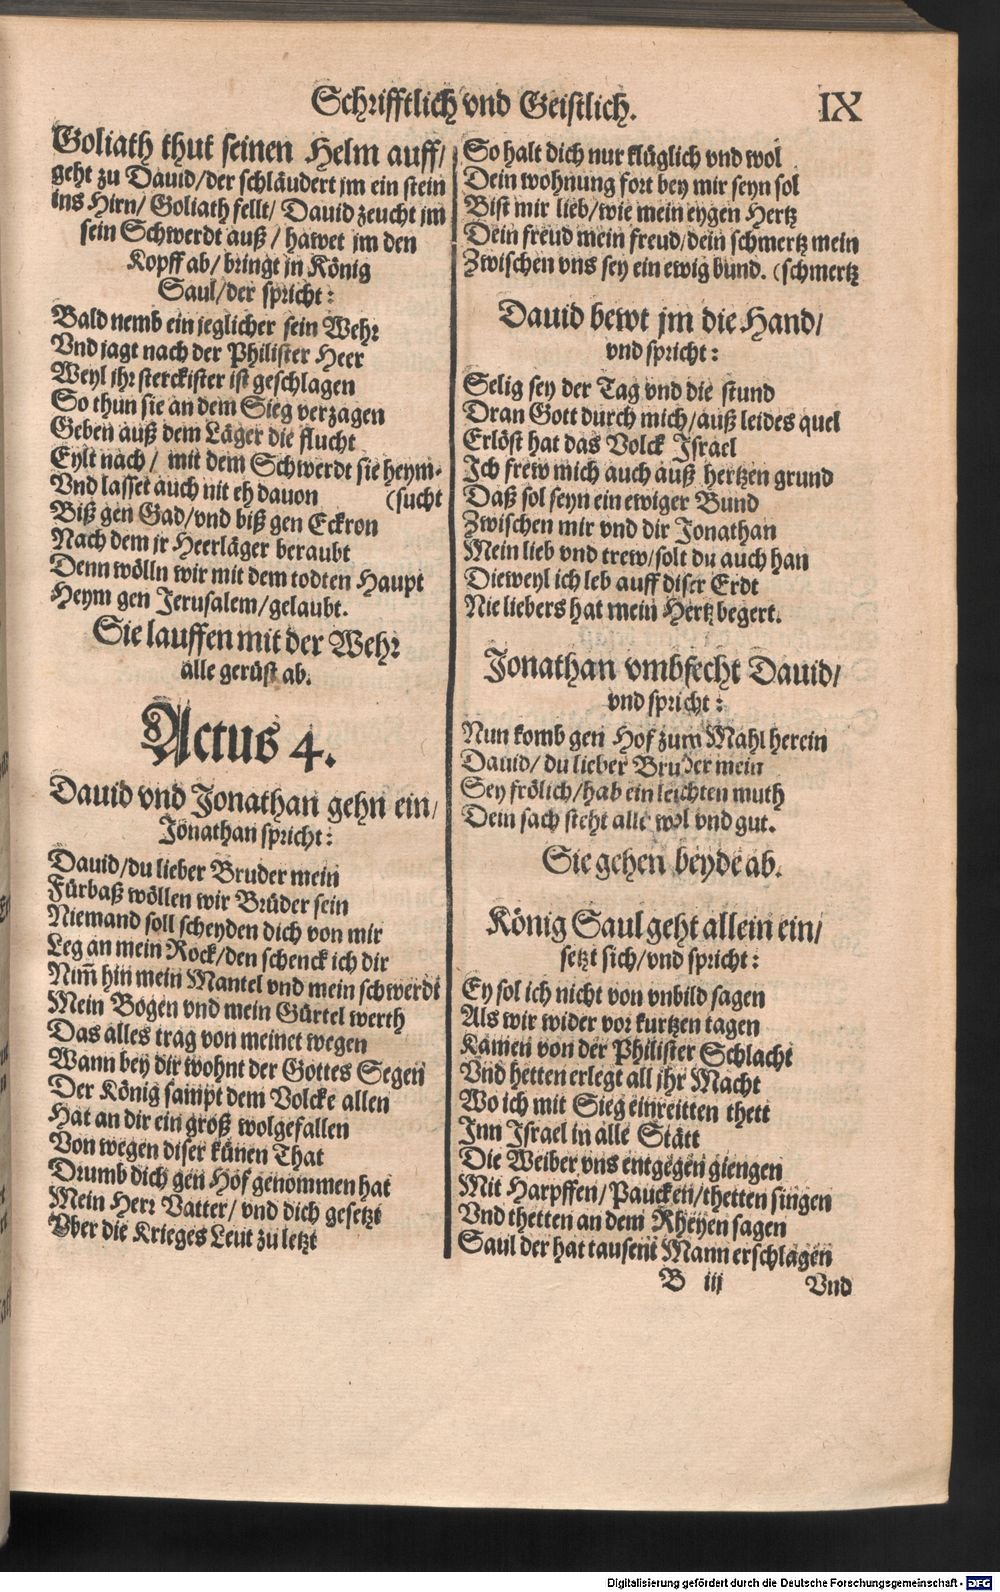 Schrifftlich vnd Geistlich. IX
Goliath thut seinen Helm auff/
geht zu Dauid/der schläudert jm ein stein
ins Hirn/ Goliath fellt/ Dauid zeucht jm
sein Schwerdt auß / hawet jm den
Kopff ab/ bringt jn König
Saul/der spricht:
Bald nemb ein jeglicher sein Wehr
Vnd jagt nach der Philister Heer
Weyl jhr sterckister ist geschlagen
So thun sie an dem Sieg verzagen
Geben auß dem Läger die flucht
Eylt nach / mit dem Schwerdt sie heym-
Vnd lasset auch nit eh dauon (sucht
Biß gen Gad/vnd biß gen Eckron
Nach dem jr Heerläger beraubt
Denn wölln wir mit dem todten Haupt
Heym gen Jerusalem/gelaubt.
Sie lauffen mit der Wehr
alle gerüst ab.
Actus 4.
Dauid vnd Jonathan gehn ein/
Jonathan spricht:
Dauid/du lieber Bruder mein
Fürbaß wöllen wir Brüder sein
Niemand soll scheyden dich von mir
Leg an mein Rock/den schenck ich dir
Nim̄ hin mein Mantel vnd mein schwerdt
Mein Bogen vnd mein Gürtel werth
Das alles trag von meinet wegen
Wann bey dir wohnt der Gottes Segen
Der König sampt dem Volcke allen
Hat an dir ein groß wolgefallen
Von wegen diser künen That
Drumb dich gen Hof genommen hat
Mein Herr Vatter/ vnd dich gesetzt
Vber die Krieges Leut zu letzt
So halt dich nur klüglich vnd wol
Dein wohnung fort bey mir seyn sol
Bist mir lieb/wie mein eygen Hertz
Dein freud mein freud/dein schmertz mein
Zwischen vns sey ein ewig bund. (schmertz
Dauid bewt jm die Hand/
vnd spricht:
Selig sey der Tag vnd die stund
Dran Gott durch mich/auß leides quel
Erlöst hat das Volck Israel
Ich frew mich auch auß hertzen grund
Daß sol seyn ein ewiger Bund
Zwischen mir vnd dir Jonathan
Mein lieb vnd trew/solt du auch han
Dieweyl ich leb auff diser Erdt
Nie liebers hat mein Hertz begert.
Jonathan vmbfecht Dauid/
vnd spricht:
Nun komb gen Hof zum Mahl herein
Dauid/ du lieber Bruder mein
Sey frölich/hab ein leichten muth
Dein sach steht alle wol vnd gut.
Sie gehen beyde ab.
König Saul geht allein ein/
setzt sich/vnd spricht:
Ey sol ich nicht von vnbild sagen
Als wir wider vor kurtzen tagen
Kamen von der Philister Schlacht
Vnd hetten erlegt all jhr Macht
Wo ich mit Sieg einreitten thett
Inn Israel in alle Stätt
Die Weiber vns entgegen giengen
Mit Harpffen/Paucken/thetten singen
Vnd thetten an dem Rheyen sagen
Saul der hat tausent Mann erschlagen
B iij Vnd
Digitalisierung gefördert durch die Deutsche Forschungsgemeinschaft - DFG